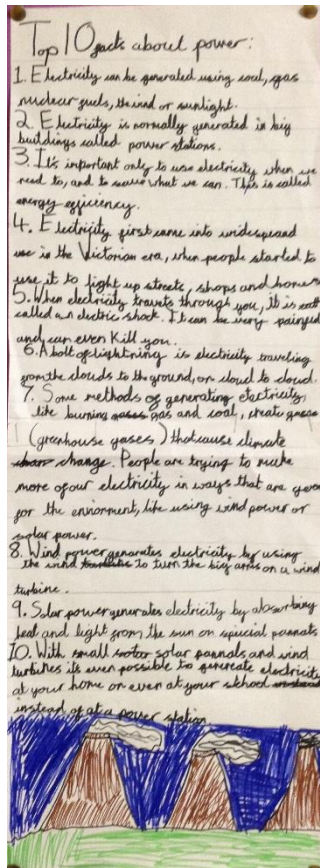 Top 10 facts about power:
1. Electricity can be generated using coal, gas
nuclear fuels, the ind or sunlight.
2. Electricity is normally generated in big
buildings called power stations.
3. It's important only to use electricity when we
need to, and to save what we can. This is called
energy efficiency.
4. Electricity first came into widespread
use in the Victorian era, when people started to
use it to light up streets, shops and homes
5. When electricity travels through you, it is
called an electric shock. It can be very painful
and can even kill you.
6. A bolt of lightning is electricity traveling
from the clouds to the ground, or cloud to cloud.
7. Some methods of generating electricity,
like burning gas and coal, create
(greenhouse gases) that cause climate
change. People are trying to make
more of our electricity in ways that are
for the enironment, like using wind power or
solar power.
8. Wind power genarates electricity by using
the wind to turn the big arms on a wind
turbine.
9. Solar power generates electricity by absorbing
heat and light from the sun on special pannals
10. With small solar pannals and wind
turbines its even possible to genereate electricity
at your home or even at your skhool
instead of at a power station